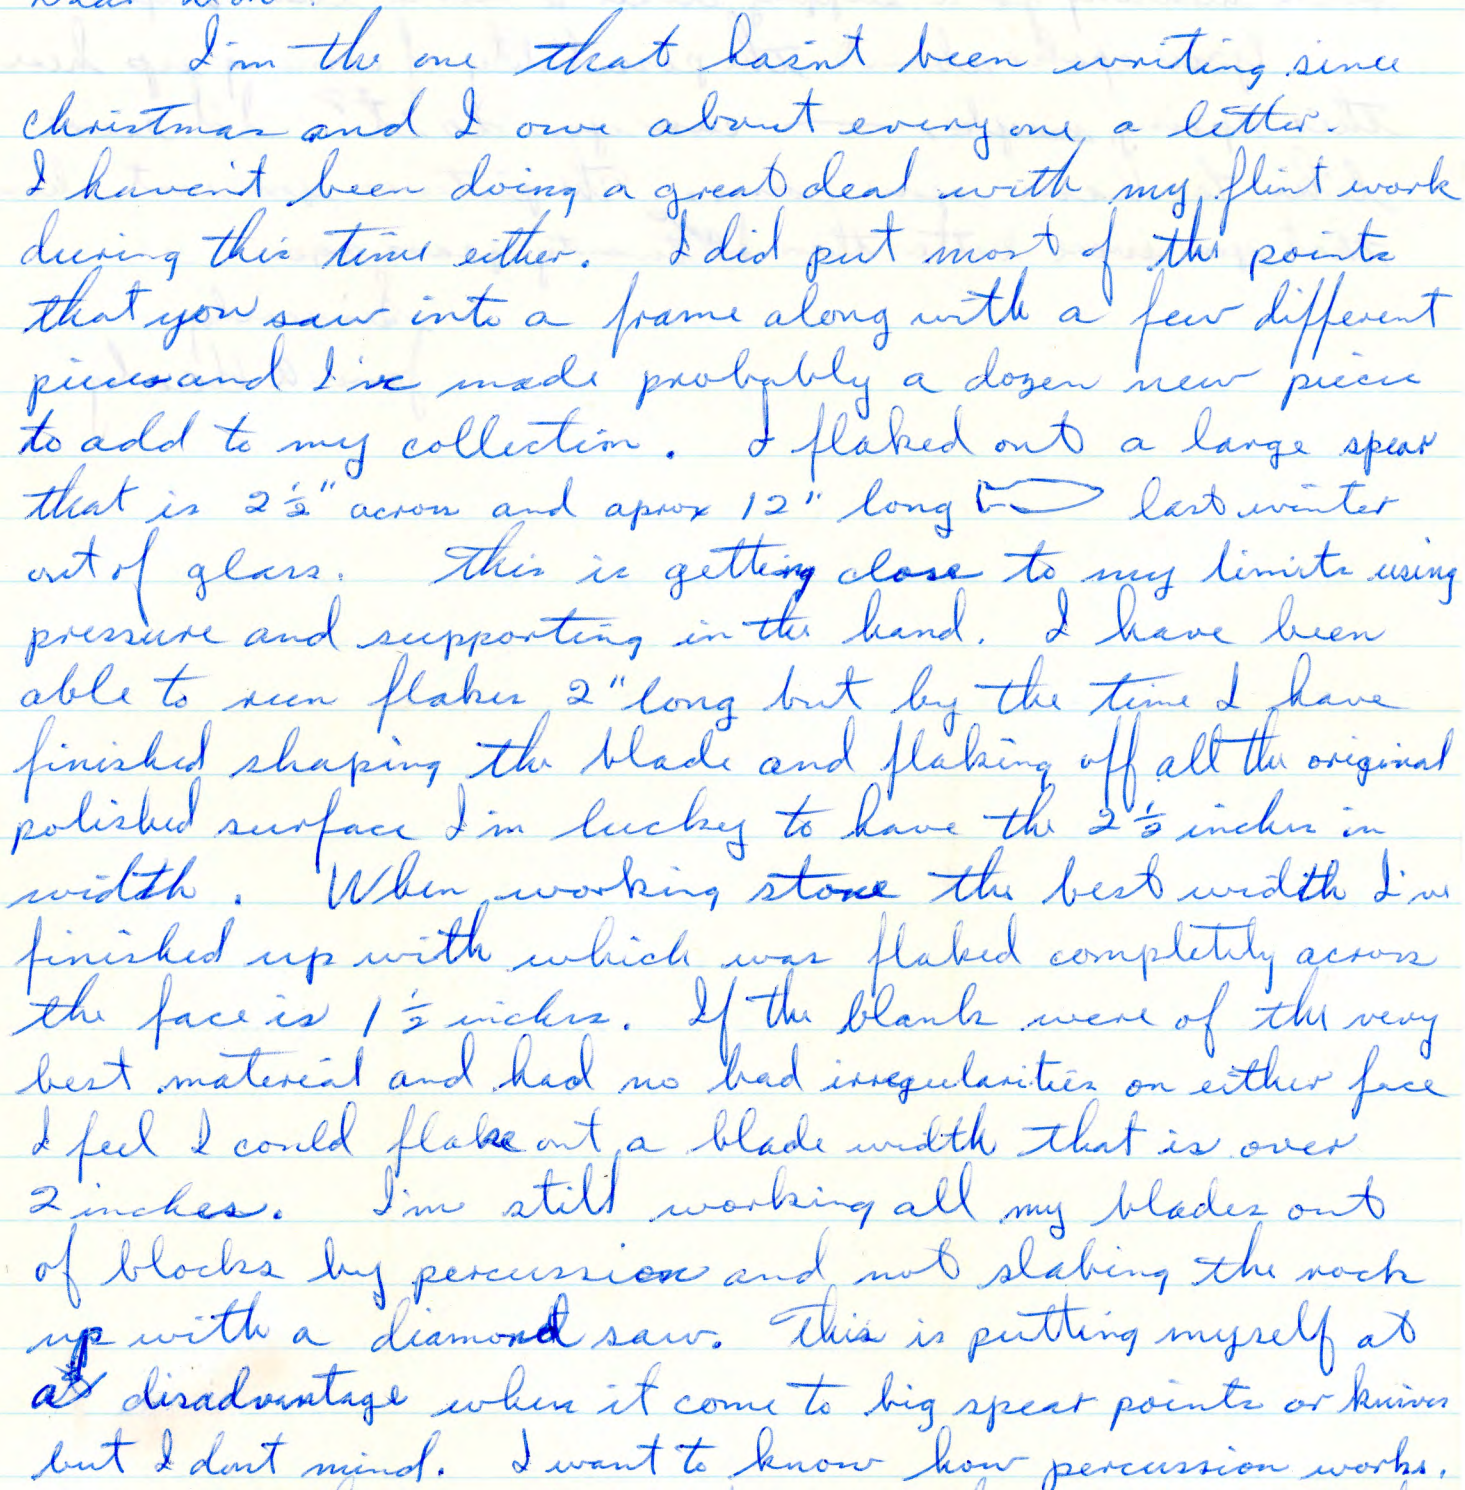 I'm the one that hasn't been writing since
christmas and I owe about everyone a letter.
I haven't been doing a great deal with my flint work
during this time either. I did put most of the points
that you saw into a frame along with a few different
pieces and I've made probably a dozen new piece
to add to my collection. I flaked out a large spear
that is 2½" across and aprox 12" long last winter
out of glass. This is getting close to my limits using
pressure and supporting in the hand. I have been
able to run flakes 2" long but by the time I have
finished shaping the blade and flaking off all the original
polished surface I'm lucky to have the 2½ inches in
width. When working stone the best width I've
finished up with which was flaked completely across
the face is 1½ inches. If the blank were of the very
best material and had no bad irregularities on either face
I feel I could flake out a blade width that is over
2 inches. I'm still working all my blades out
of blocks by percussion and not slabing the rock
up with a diamond saw. This is putting myself at
a disadvantage when it come to big spear points or knives
but I dont mind. I want to know how percussion works.